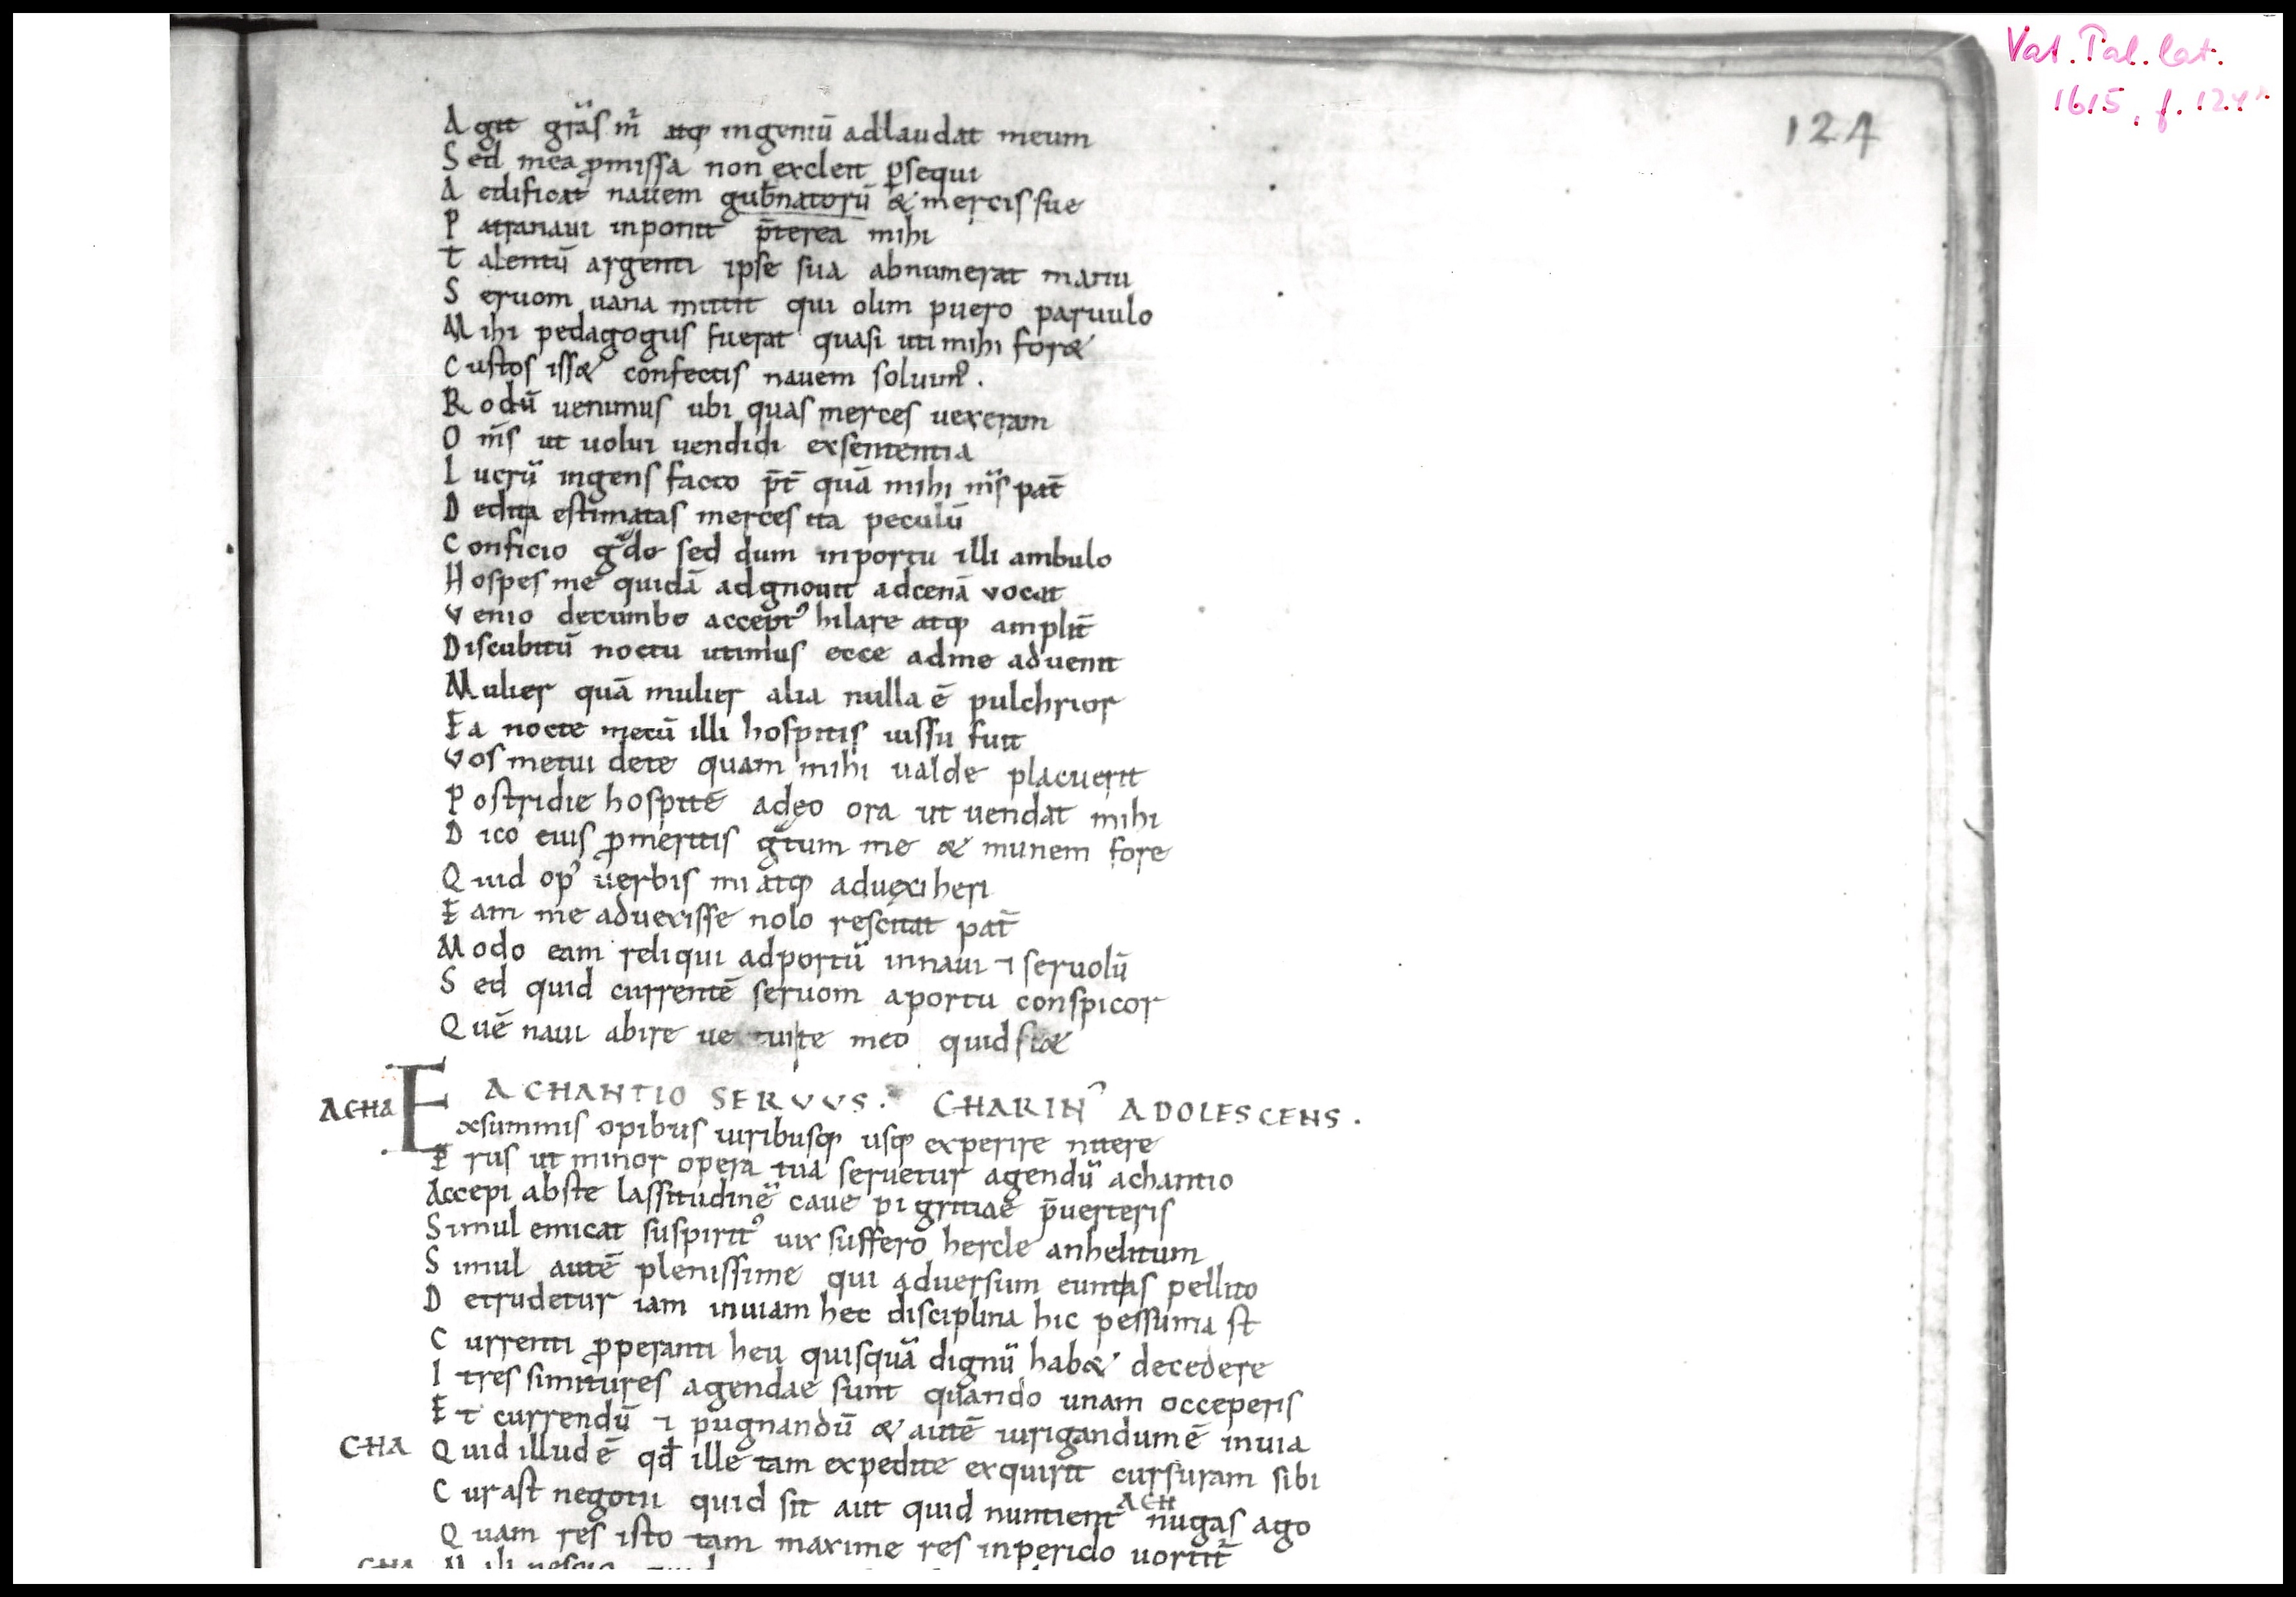 Vat. Pal. lat.
1615, f. 124r
124
Agit gr̃as m̃ atq; ingeniū adlaudat meum
Sed mea ꝓmissa non expleit ꝑsequi
Aedificat nauem gub̃natorū & mercis sue
Patranaui inponit p̃terea mihi
Talentū argenti ipse sua abnumerat manu
Seruom uana mittit qui olim puero paruulo
Mihi pedagogus fuerat quasi uti mihi for&
Custos iss& confectis nauem soluim᾿.
Rodū uenimus ubi quas merces uexeram
Om̃s ut uolui uendidi exsententia
Lucrū ingens facto p̃t̃ quā mihi m̃s pat̃
Dedita estimatas merces ita peculiū
Conficio g̃do sed dum inportu illi ambulo
Hospes me quidā adgnouit adcenā vocat
Venio decumbo accept᾿ hilare atq; amplit̃
Discubitū noctu utimus ecce adme aduenit
Mulier quā mulier alia nulla ē pulchrior
Ea nocte mecū illi hospitis iussu fuit
Vosmetui dete quam mihi ualde placuerit
Postridie hospitē adeo ora ut uendat mihi
Dico eius ꝓmeritis g̃tum me & munem fore
Quid op᾿ uerbis mi atq; aduexi heri
Eam me aduexisse nolo resciat pat̃
Modo eam reliqui adportū innaui ⁊ seruolū
Sed quid currentē seruom aportu conspicor
Quē naui abire ue tui te meo quid si&
ACHANTIO SERVVS. CHARIN᾿ ADOLESCENS.
ACHA Exsummis opibus uiribusq; usq; experire nitere
Erus ut minor opera tua seruetur agendū achantio
Accepi abste lassitudinē caue pigritiae p̃uerteris
Simul emicat suspirit᾿ uix suffero hercle anhelitum
Simul autē plenissime qui aduersum euntas pellito
Detrudetur iam inuiam hec disciplina hic pessuma st
Currenti ꝓperanti heu quisquā dignū hab& decedere
Itres simitures agendae sunt quando unam occeperis
Et currendū ⁊ pugnandū & autē iurigandumē inuia
CHA Quid illudē qđ ille tam expedite exquirit cursuram sibi
Curast negotii quid sit aut quid nuntient ACH nugas ago
Quam res isto tam maxime res inpericlo uortit̃
CHA